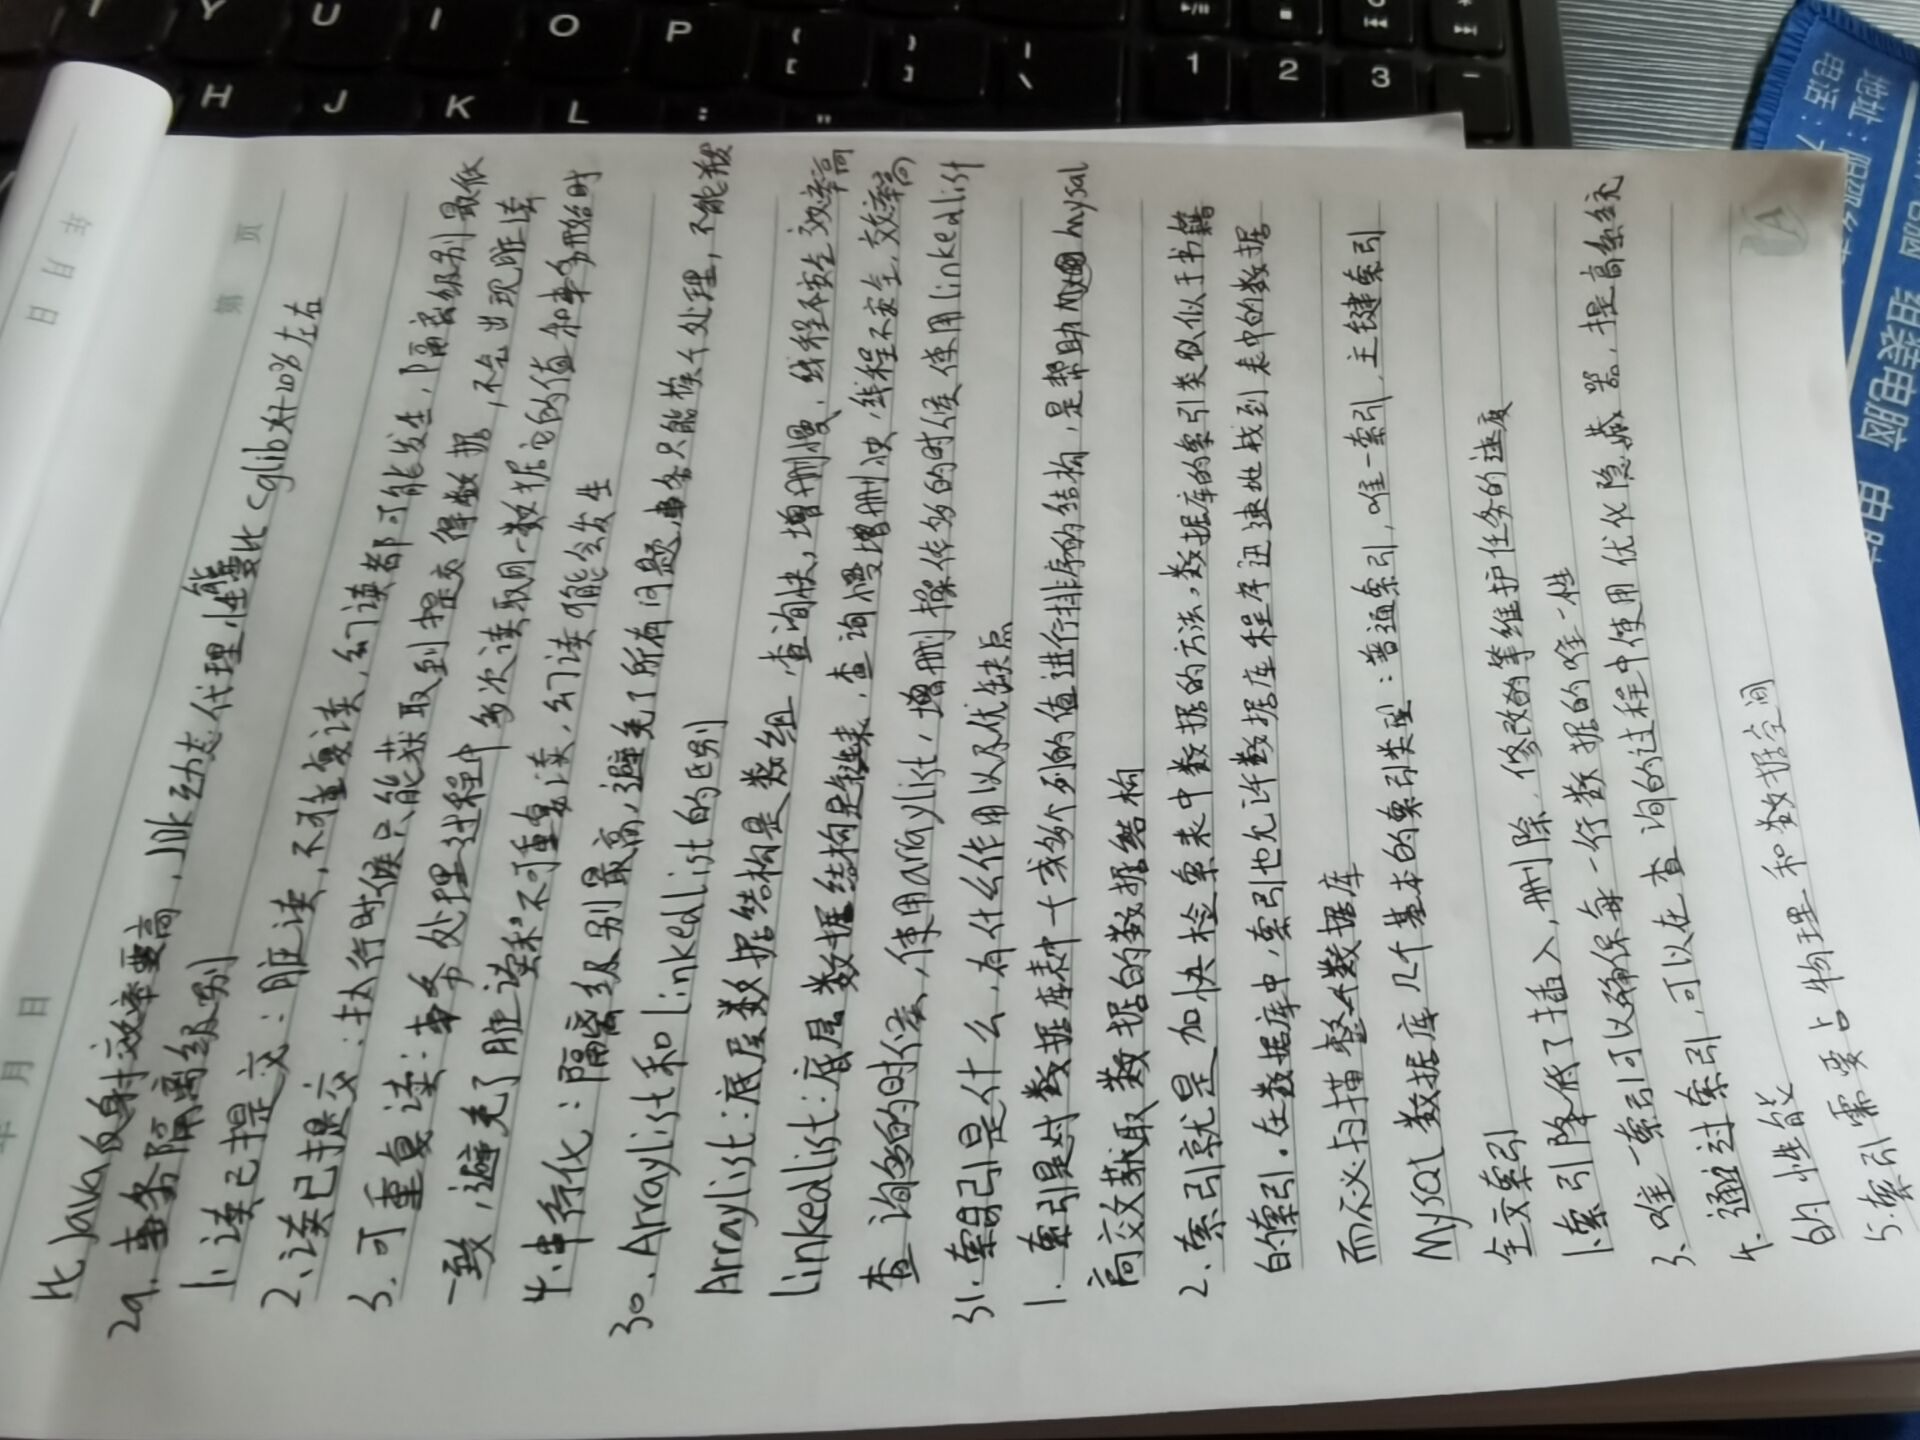 比Java反射效率要高，JDK动态代理性能要比cglib好20%左右
29.事务隔离级别
1.读已提交：脏读，不可重复读，幻读都可能发生，隔离级别最低
2.读已提交：执行时候只能获取到提交得数据，不会出现脏读
3.可重复读：事务处理过程中多次读取同一数据它的值和事务开始时
一致，避免了脏读和不可重复读，幻读可能会发生
4.串行化：隔离级别最高，避免了所有问题，事务只能挨个处理，不能
30.Arraylist和linkedlist的区别
Arraylist：底层数据结构是数组，查询快，增删慢，线程不安全，效率高
linkedlist：底层数据结构是链表，查询慢增删快，线程不安全，效率高
查询多的时候，使用arraylist，增删操作多的时候使用linkedlist
31.索引是什么，有什么作用以及优缺点
1.索引是对数据库表中一或多个列的值进行排序的结构，是帮助mysql
高效获取数据的数据结构
2.索引就是加快检索表中数据的方法，数据库的索引类似于书籍
的索引。在数据库中，索引也允许数据库程序迅速地找到表中的数据
而不必扫描整个数据库
MySQL数据库几个基本的索引类型：普通索引，唯一索引，主键索引
全文索引
1.索引降低了插入，删除，修改的等维护任务的速度
3.唯一索引可以确保每一行数据的唯一性
4.通过索引，可以在查询的过程中使用优化隐藏器，提高系统
的性能
5.索引需要占物理和数据空间
年 月 日
第 页
年 月 日
T Y U I O P { [ } ] | \
H J K L : "
1 2 3 -
地址：
电话：7
组装电脑
A